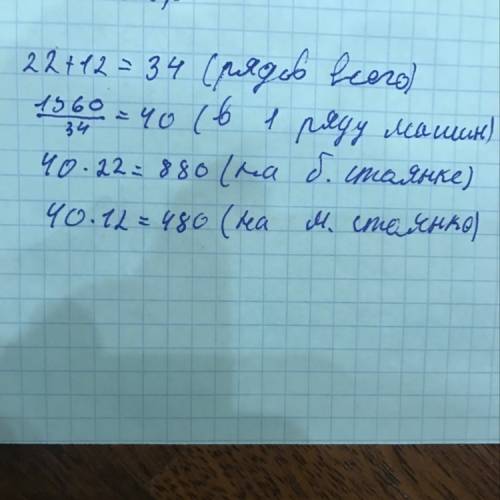 22+12 = 34 (рядов всего)
1360/34 = 40 (в 1 ряду машин)
40·22 = 880 (на б. стоянке)
40·12 = 480 (на м. стоянке)